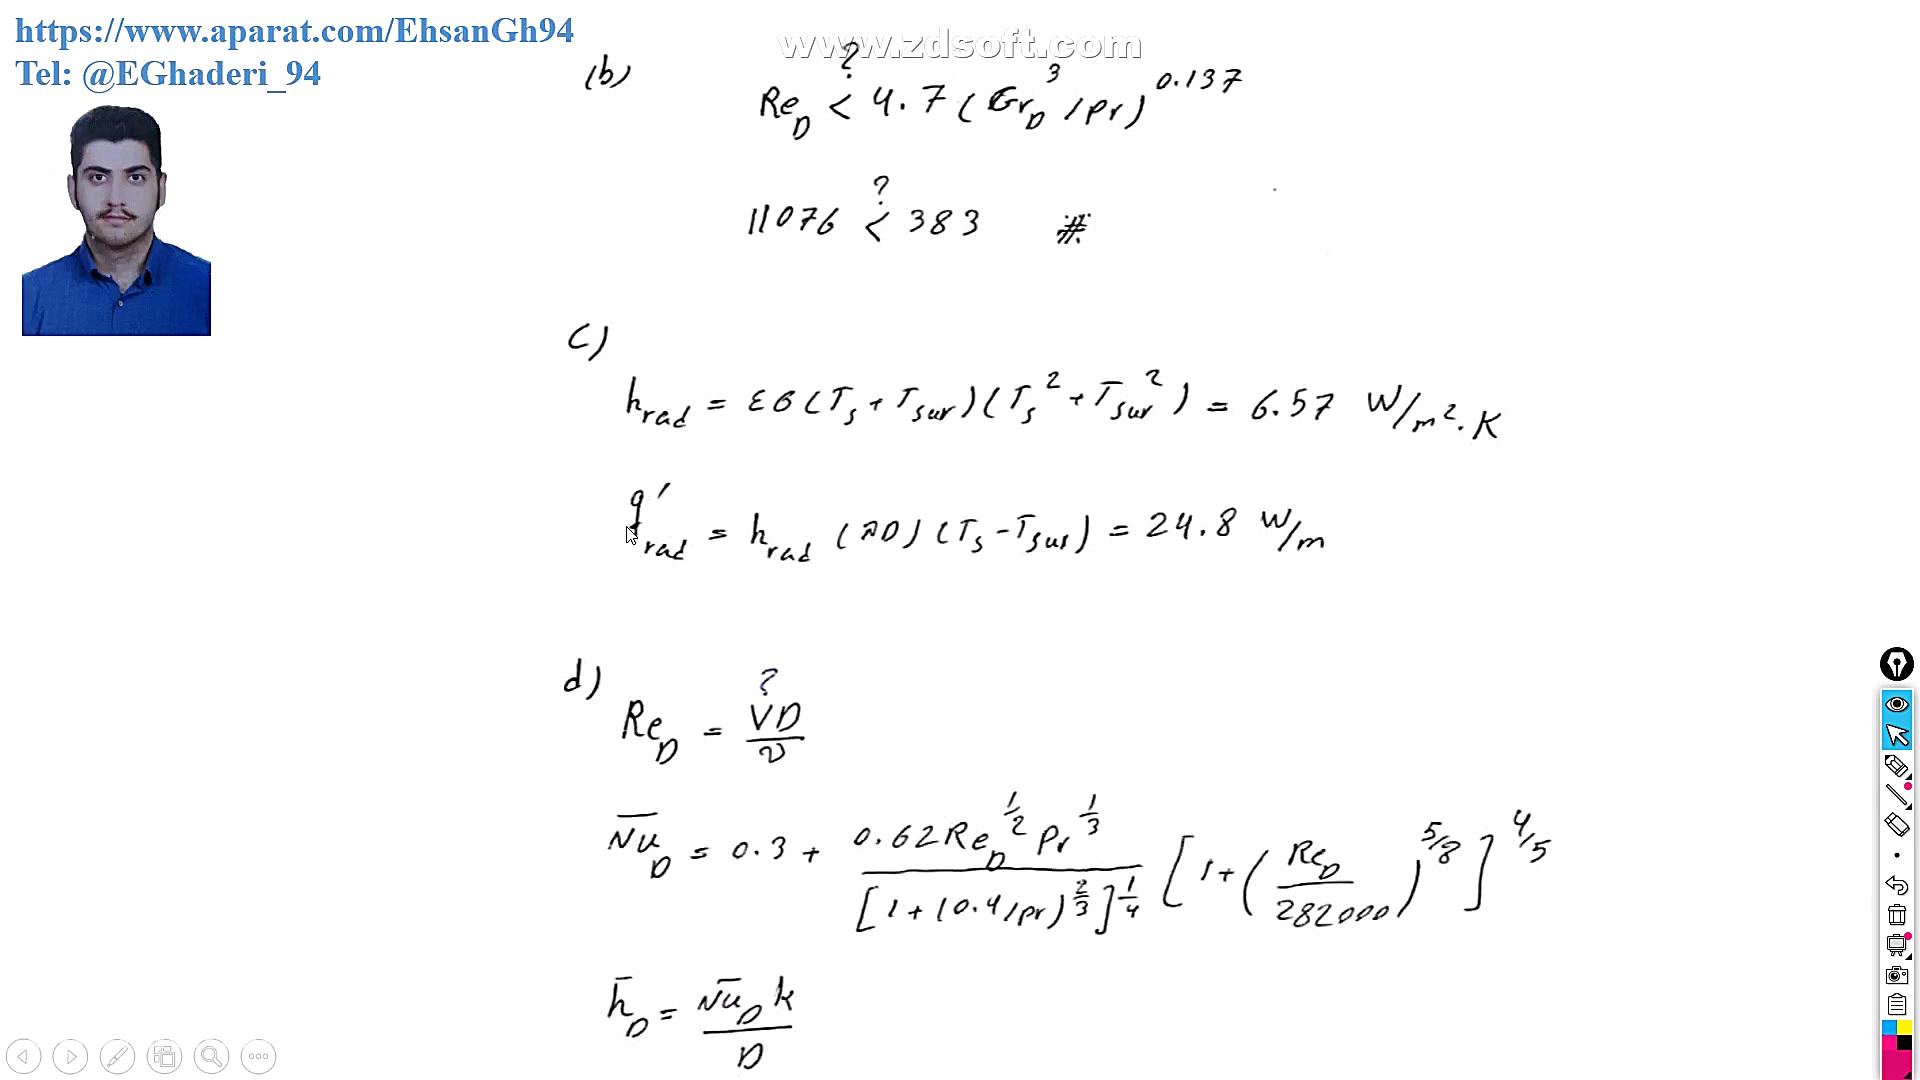 https://www.aparat.com/EhsanGh94
Tel: @EGhaderi_94
www.zdsoft.com
(b)
?
Re_D < 4.7 (Gr_D^3 / Pr)^0.137
?
11076 < 383 #
c)
h_rad = εσ(T_s + T_sur)(T_s^2 + T_sur^2) = 6.57 W/m^2.K
q'_rad = h_rad (πD)(T_s - T_sur) = 24.8 W/m
d)
?
Re_D = VD/ν
N̅u̅_D = 0.3 + 0.62 Re_D^{1/2} Pr^{1/3} / [1 + (0.4/Pr)^{2/3}]^{1/4} [1 + (Re_D/282000)^{5/8}]^{4/5}
h̅_D = N̅u̅_D k / D